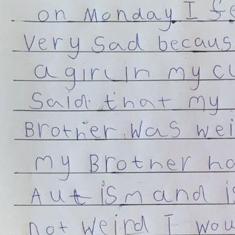 on Monday I fe
Very sad becaus
a girl in my cl
Said that my
Brother was wei
my Brother ha
Autism and is
not weird I wou